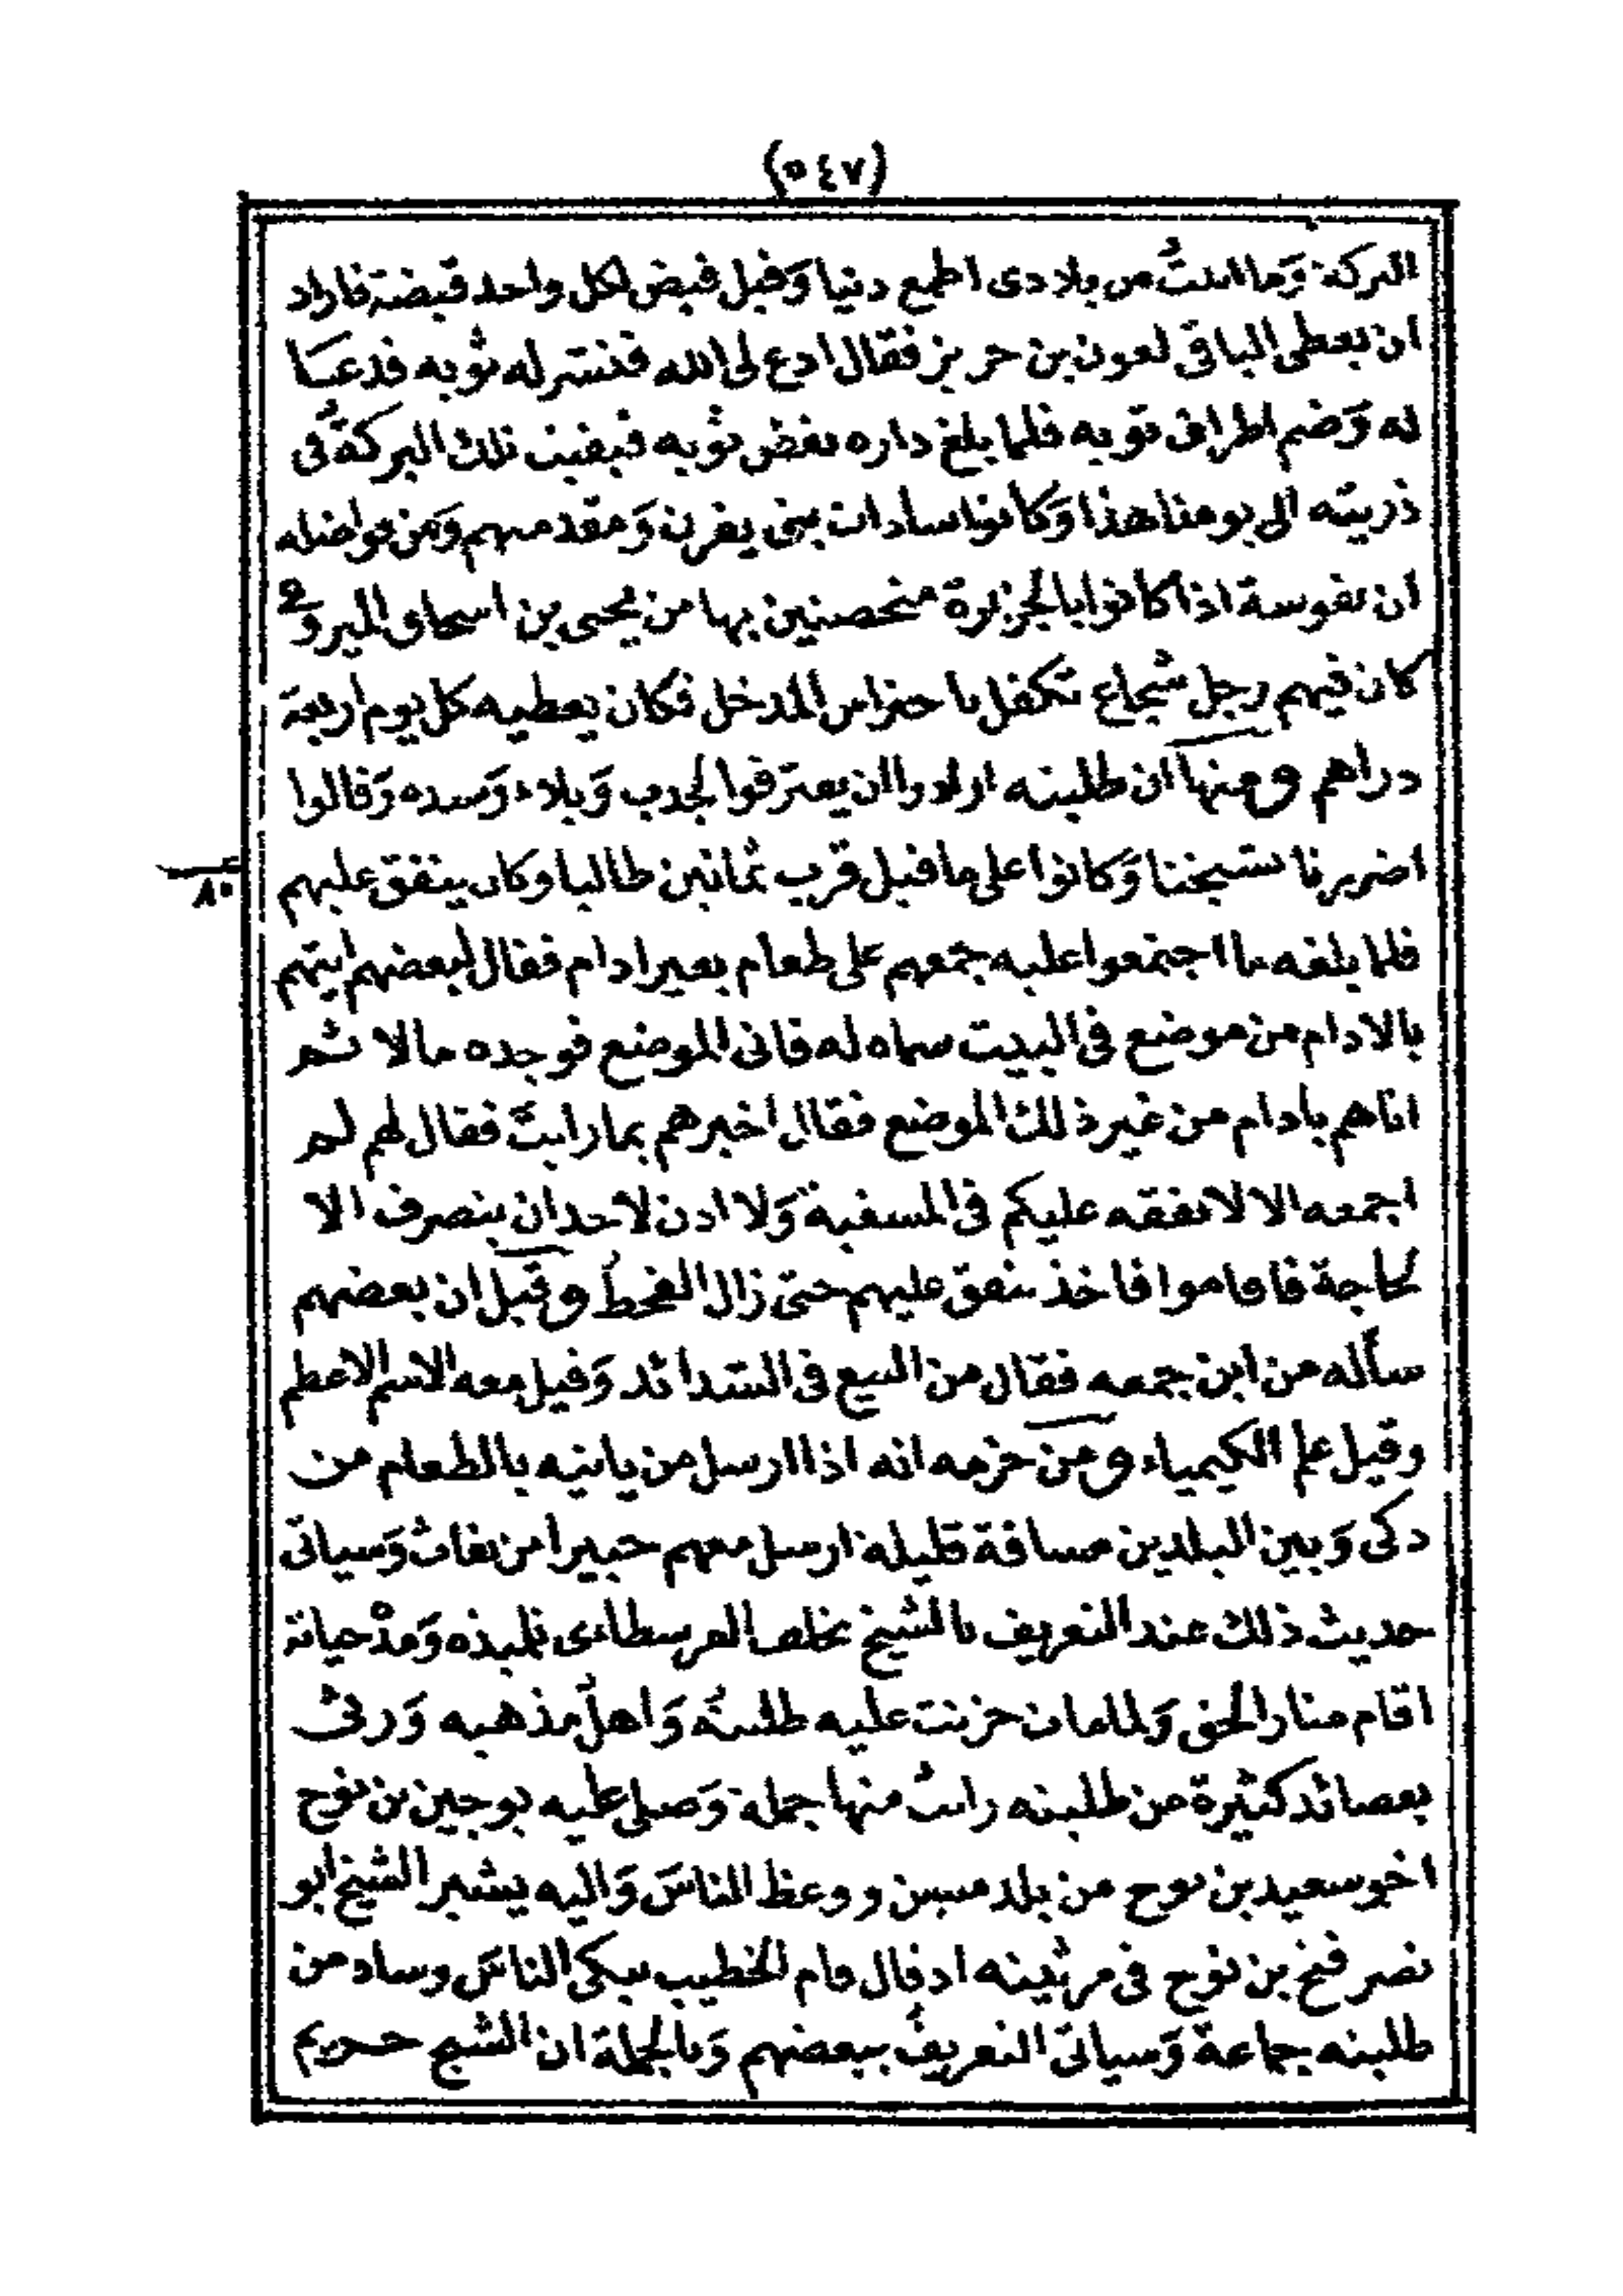 (٥٤٧)
البركة وَما اتيتُ من بلادى اطمع دنيا وَقيل قبض لكل واحد قبضة فاراد
ان يعطى الباقى لعون بن حريز فقال ادع لى الله فنشر له ثوبه فدعا
له وَضم اطراف ثوبه فلما بلغ داره نفض ثوبه فبقيت تلك البركةُ فى
ذريته الى يومنا هذا وَكانوا سادات بنى يفرن وَمقدمهم وَمن فواضله
ان نفوسة اذا كانوا بالجزيرة متحصنين بها من يحيى بن اسحاق الميروقى
كان فيهم رجل شجاع تكفل باحتراس المدخل فكان يعطيه كل يوم اربعة
دراهم ومنها ان طلبته ارادوا ان يفترقوا لجدب وَبلاء وَسده وَقالوا
اضررنا بشيخنا وَكانوا على ما قيل قرب ثمانين طالبا وكان ينفق عليهم
٨٠
فلما بلغه ما اجتمعوا عليه جمعهم على طعام بغير ادام فقال لبعضهم ايتهم
بالادام من موضع فى البيت سماه له فاتى الموضع فوجده مالا ثم
اتاهم بادام من غير ذلك الموضع فقال اخبرهم بما رايتَ فقال لهم لم
اجمعه الا لانفقه عليكم فى المسغبة وَلا اذن لاحد ان ينصرف الا
لحاجة فاقاموا فاخذ ينفق عليهم حتى زال القحط وقيل ان بعضهم
سأله من اين جمعه فقال من البيع فى الشدائد وَقيل معه الاسم الاعظم
وقيل علم الكيمياء ومن حزمه انه اذا ارسل من ياتيه بالطعام من
دكى وَبين البلدين مسافة قليلة ارسل معهم خبيرا من نفاث وَسياتى
حديث ذلك عند التعريف بالشيخ يخلف الفرسطاءى تلميذه وَمدْ حياته
اقام منار الحق وَلما مات حزنت عليه طلبتهُ وَاهلُ مذهبه وَرثى
بقصائد كثيرة من طلبته رايت منها جملة وَصلى عليه بوجين بن نوح
اخو سعيد بن نوح من بلد ووعظ الناسَ وَاليه يشير الشيخ ابو
نصر فتح بن نوح فى مرثيته اذ قال قام الخطيب يبكى الناسَ وساد من
طلبته جماعة وَسياتى التعريفُ ببعضهم وَبالجملة ان الشيخ حريم